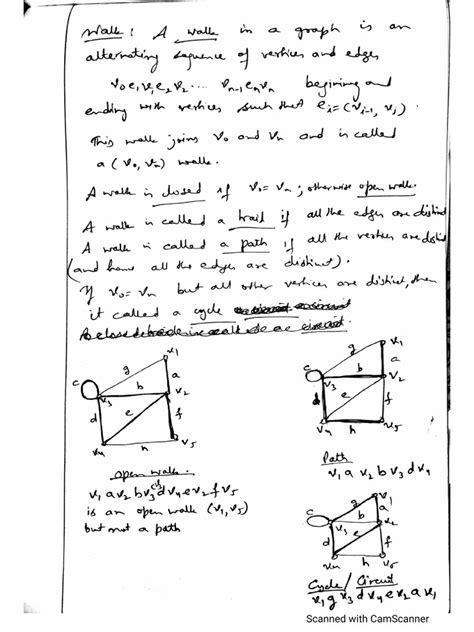 Walk: A walk in a graph is an
alternating sequence of vertices and edges
v0e1v1e2v2 ... vn-1envn begining and
ending with vertices such that ei=(vi-1, vi).
This walk joins v0 and vn and is called
a (v0, vn) walk.
A walk is closed if v0= vn; otherwise open walk.
A walk is called a trail if all the edges are distinct
A walk is called a path if all the vertices are distinct
(and hence all the edges are distinct).
If v0= vn but all other vertices are distinct, then
it called a cycle
v1
g
a
c
b
v3
v2
d
e
f
v4
h
v5
open walk.
v1 a v2 b v3 c v3 d v4 e v2 f v5
is an open walk (v1, v5)
but not a path
v1
g
a
c
b
v3
v2
d
e
f
v4
h
v5
Path
v1 a v2 b v3 d v4
v1
g
a
c
b
v3
v2
d
e
f
v4
h
v5
Cycle/ Circuit
v1 g v3 d v4 e v2 a v1
Scanned with CamScanner